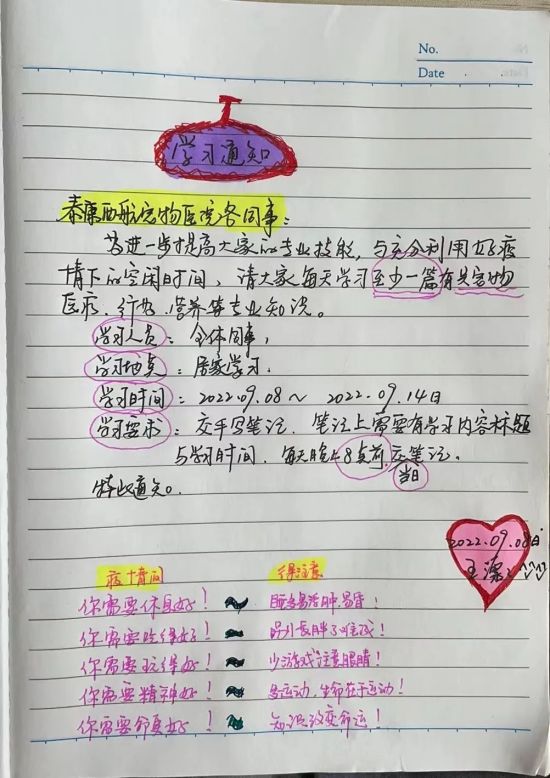 No.
Date
学习通知
泰康西航宠物医院各同事：
为进一步提高大家的专业技能，与充分利用好疫
情下的空闲时间，请大家每天学习至少一篇有关宠物
医疗、行为、营养等专业知识。
学习人员：全体同事，
学习地点：居家学习．
学习时间：2022.09.08～2022.09.14日
学习要求：交手写笔记．笔记上需要有学习内容标题
与学习时间．每天晚上8点前交笔记．
当日
特此通知。
2022.09.08日
王
疫情间 得注意
你需要休息好！ 睡多易浮肿、易昏！
你需要吃得好！ 别长胖了哦！
你需要玩得好！ 少游戏注意眼睛！
你需要精神好！ 多运动，生命在于运动！
你需要命更好！ 知识改变命运！